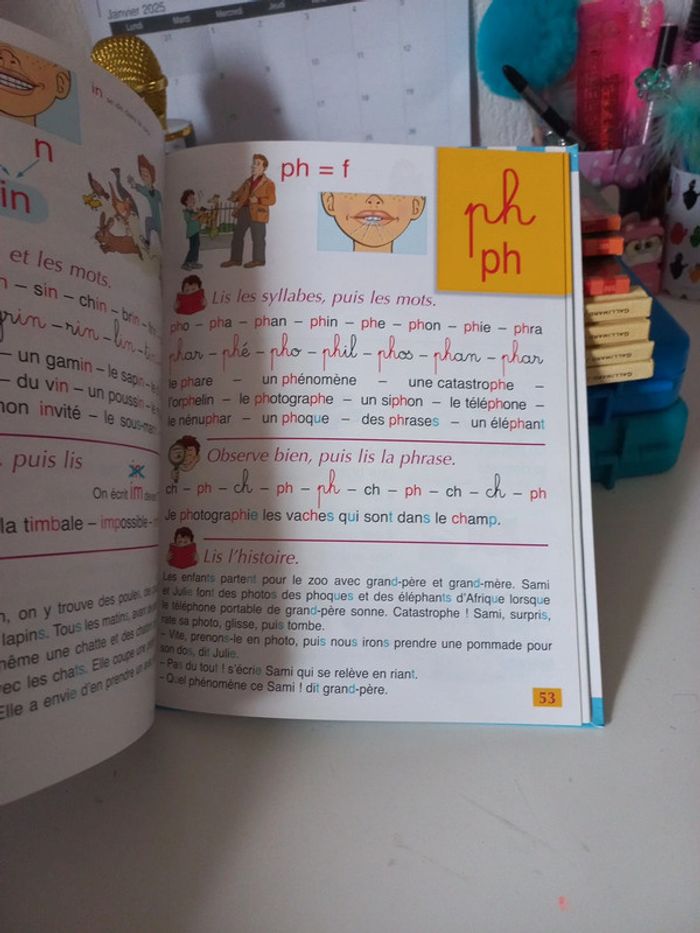 Janvier 2025
Lundi Mardi Mercredi Jeudi
in
n
in
et les mots.
n – sin – chin – brin –
grin – rin – lin –
– un gamin – le sapin –
– du vin – un poussin –
non invité – le sous-marin
puis lis
On écrit im devant
la timbale – impossible –
n, on y trouve des poules, de
lapins. Tous les matins, avant
même une chatte et des
vec les chats. Elle coupe une
Elle a envie d'en prendre un
ph = f
ph
ph
Lis les syllabes, puis les mots.
pho – pha – phan – phin – phe – phon – phie – phra
phar – phé – pho – phil – phos – phan – phar
le phare – un phénomène – une catastrophe –
l'orphelin – le photographe – un siphon – le téléphone –
le nénuphar – un phoque – des phrases – un éléphant
Observe bien, puis lis la phrase.
ch – ph – ch – ph – ph – ch – ph – ch – ch – ph
Je photographie les vaches qui sont dans le champ.
Lis l'histoire.
Les enfants partent pour le zoo avec grand-père et grand-mère. Sami
et Julie font des photos des phoques et des éléphants d'Afrique lorsque
le téléphone portable de grand-père sonne. Catastrophe ! Sami, surpris,
rate sa photo, glisse, puis tombe.
– Vite, prenons-le en photo, puis nous irons prendre une pommade pour
son dos, dit Julie.
– Pas du tout ! s'écrie Sami qui se relève en riant.
– Quel phénomène ce Sami ! dit grand-père.
53
GALLIMARD
GALLIMARD
GALLIMARD